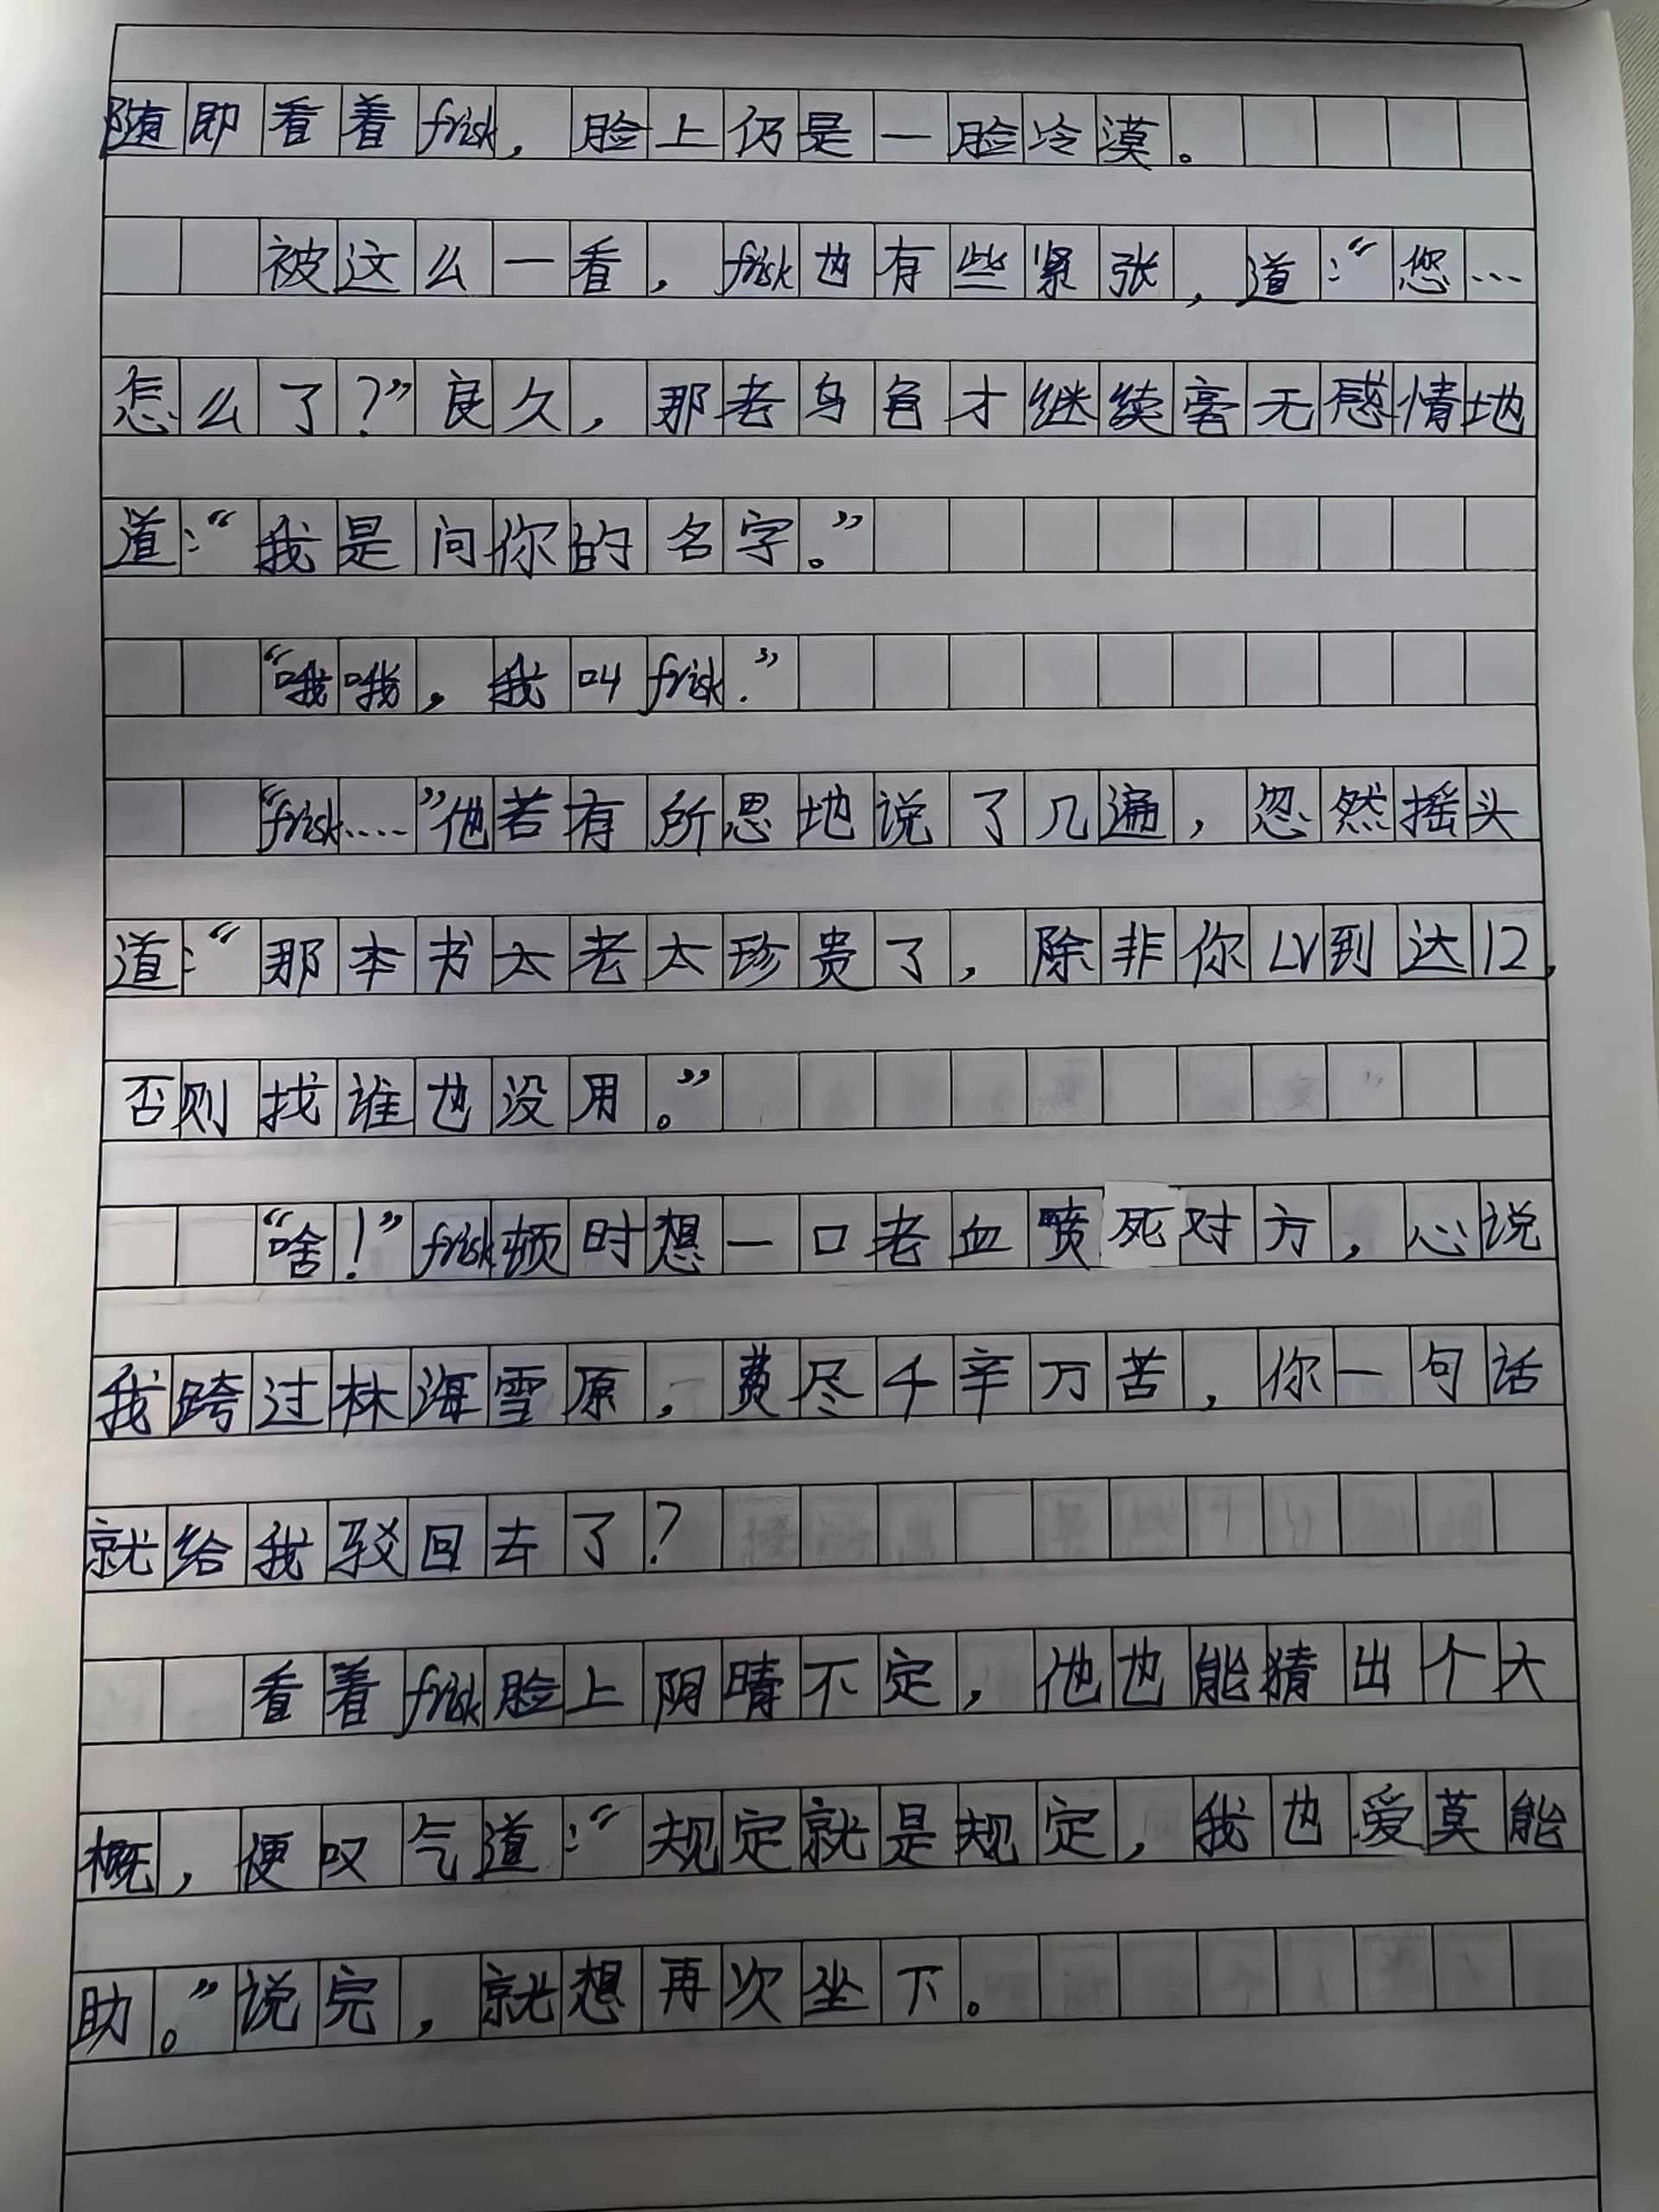 随即看着frisk，脸上仍是一脸冷漠。
被这么一看，frisk也有些紧张，道：“您…
怎么了？”良久，那老乌龟才继续毫无感情地
道：“我是问你的名字。”
“哦哦，我叫frisk.”
“frisk……”他若有所思地说了几遍，忽然摇头
道：“那本书太老太珍贵了，除非你LV到达12，
否则找谁也没用。”
“啥！”frisk顿时想一口老血喷死对方，心说
我跨过林海雪原，费尽千辛万苦，你一句话
就给我驳回去了？
看着frisk脸上阴晴不定，他也能猜出个大
概，便叹气道：“规定就是规定，我也爱莫能
助。”说完，就想再次坐下。